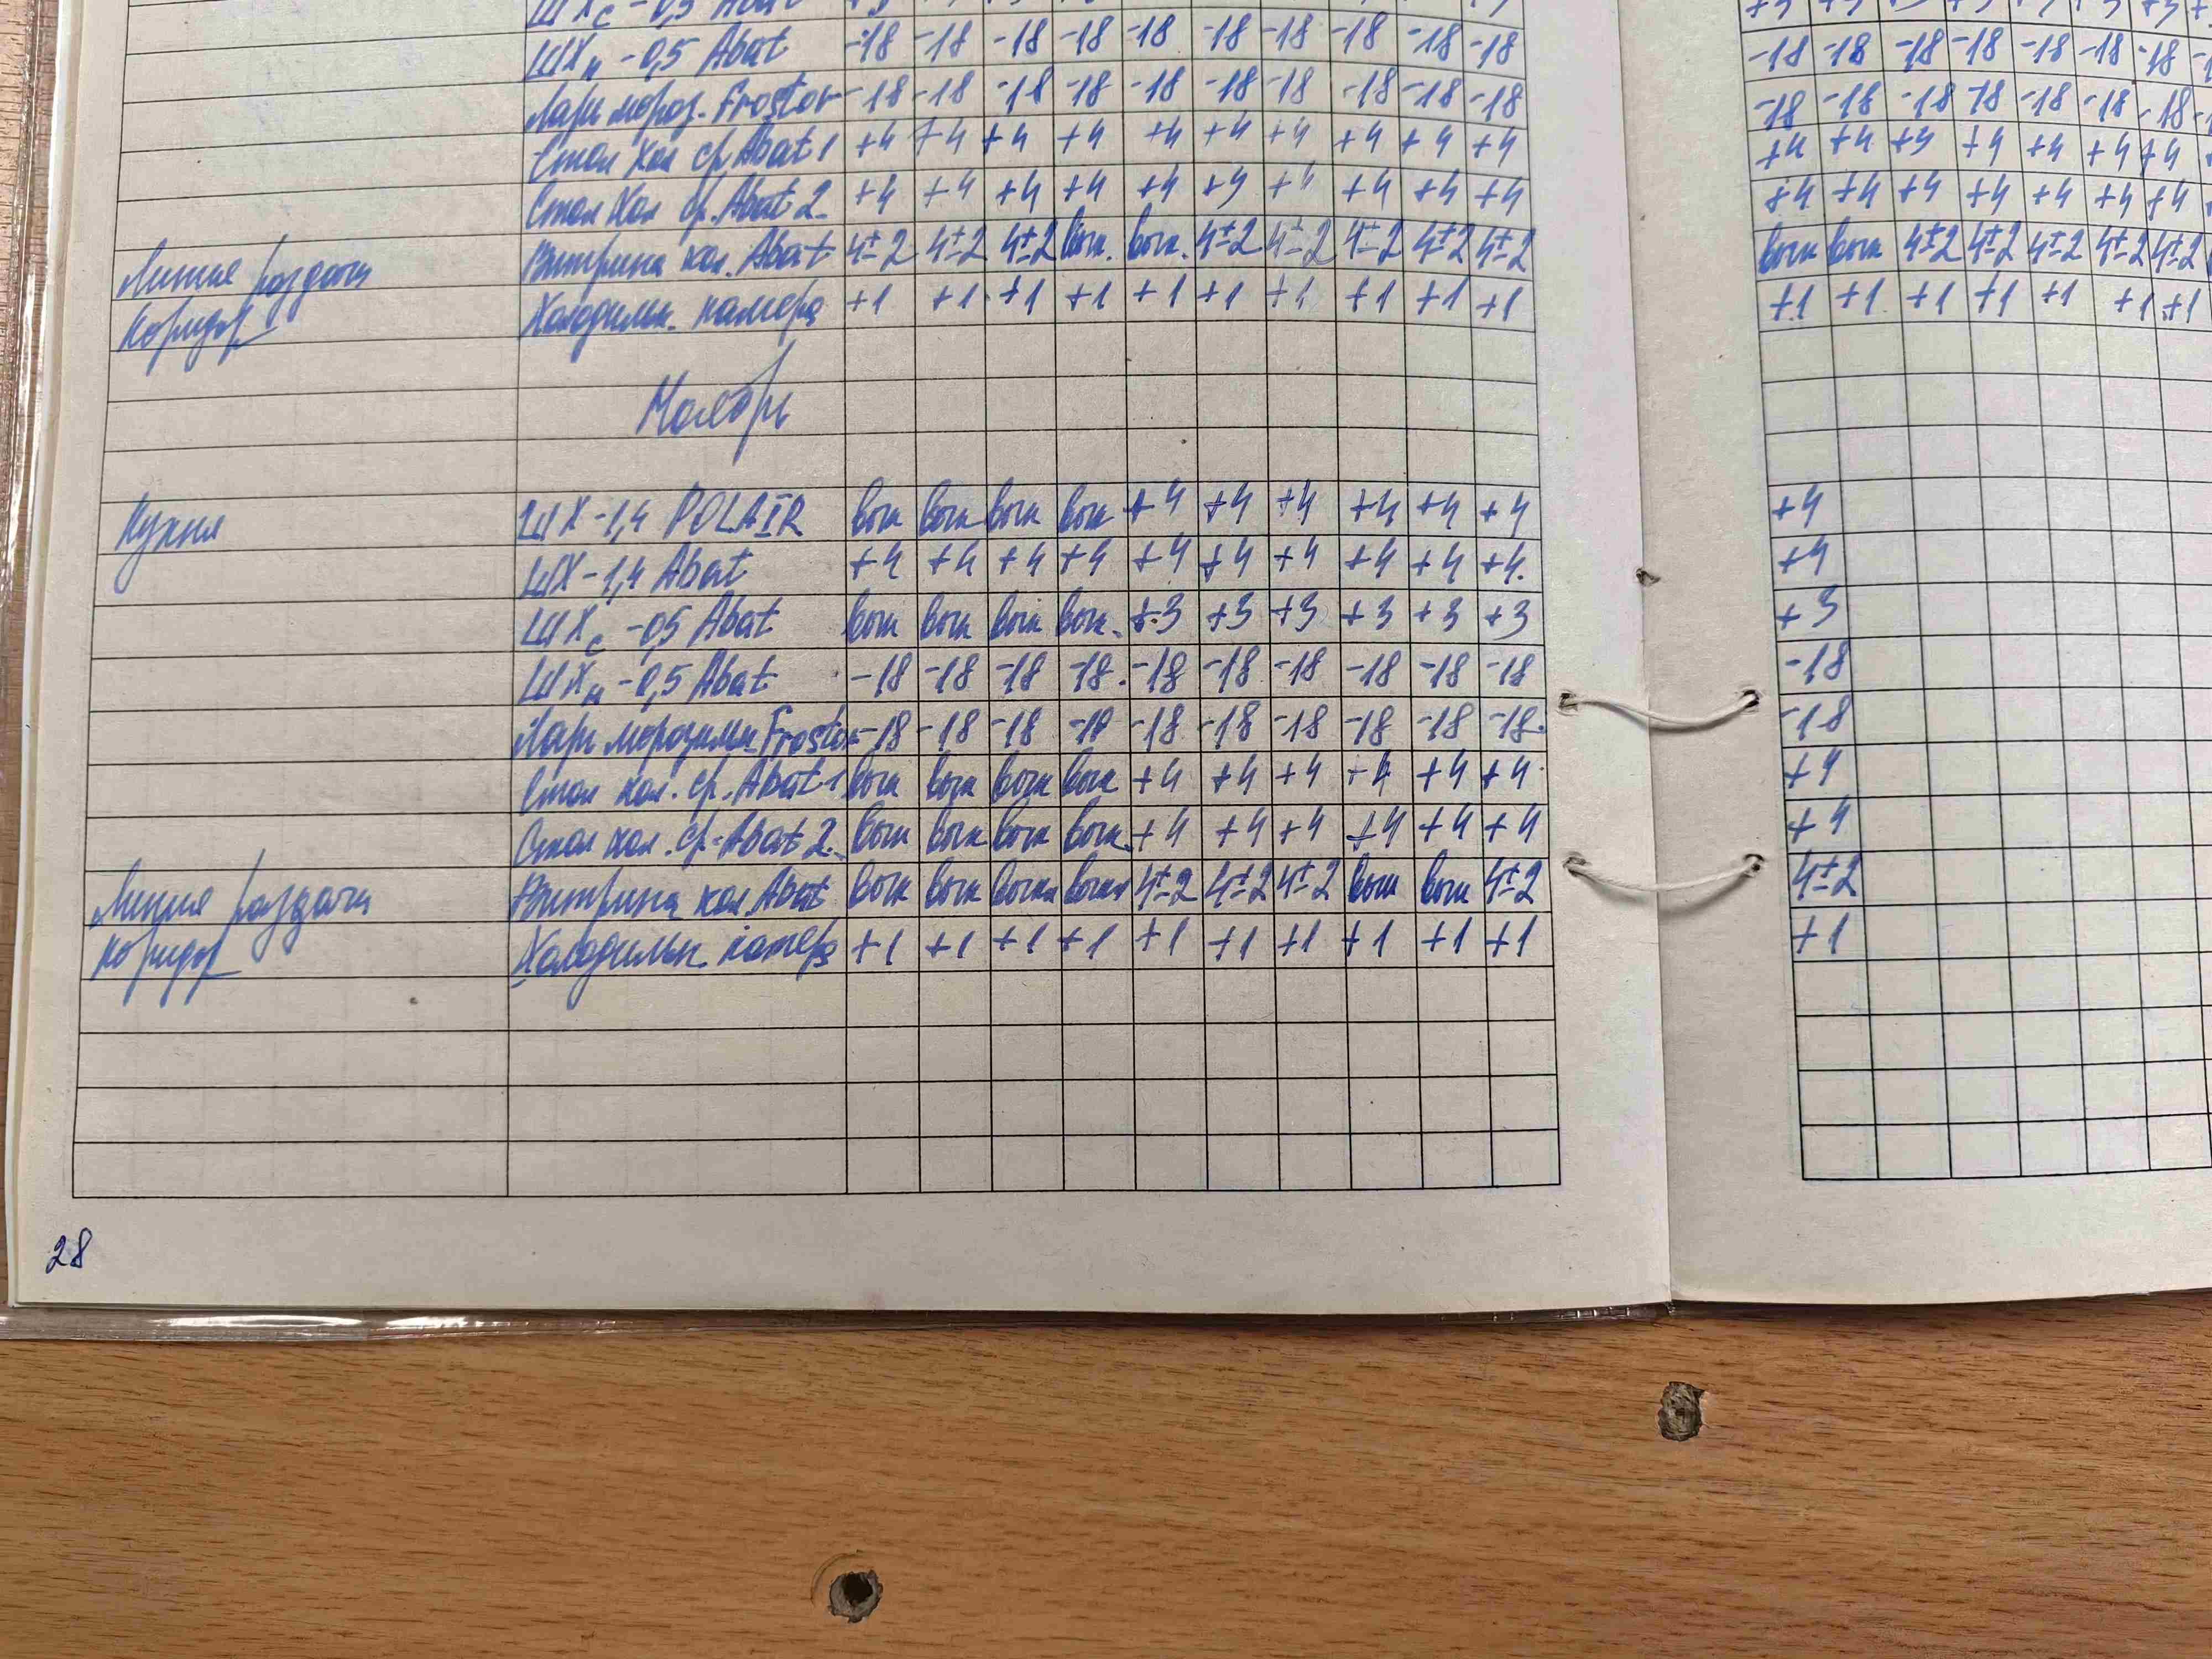 ШХс -0,5 Abat
ШХн -0,5 Abat -18 -18 -18 -18 -18 -18 -18 -18 -18 -18 -18 -18 -18 -18 -18 -18 -18
Ларь мороз. Frostor -18 -18 -18 -18 -18 -18 -18 -18 -18 -18 -18 -18 -18 -18 -18 -18 -18
Стол хол ср. Abat 1 +4 +4 +4 +4 +4 +4 +4 +4 +4 +4 +4 +4 +4 +4 +4 +4 +4
Стол хол ср. Abat 2 +4 +4 +4 +4 +4 +4 +4 +4 +4 +4 +4 +4 +4 +4 +4 +4 +4
Линия раздачи Витрина хол. Abat 4±2 4±2 4±2 вык. вык. 4±2 4±2 4±2 4±2 4±2 вык вык 4±2 4±2 4±2 4±2 4±2
Коридор Холодильн. камера +1 +1 +1 +1 +1 +1 +1 +1 +1 +1 +1 +1 +1 +1 +1 +1 +1
Ноябрь
Кухня ШХ -1,4 POLAIR вык вык вык вык +4 +4 +4 +4 +4 +4 +4
ШХ -1,4 Abat +4 +4 +4 +4 +4 +4 +4 +4 +4 +4. +4
ШХс -0,5 Abat вык вык вык вык. +3 +3 +3 +3 +3 +3 +3
ШХн -0,5 Abat -18 -18 -18 -18. -18 -18 -18 -18 -18 -18 -18
Ларь морозильн. Frostor -18 -18 -18 -18 -18 -18 -18 -18 -18 -18. -18
Стол хол. ср. Abat 1 вык вык вык вык +4 +4 +4 +4 +4 +4 +4
Стол хол. ср. Abat 2. вык вык вык вык. +4 +4 +4 +4 +4 +4 +4
Линия раздачи Витрина хол. Abat вык вык выкл выкл 4±2 4±2 4±2 вык вык 4±2 4±2
Коридор Холодильн. камера +1 +1 +1 +1 +1 +1 +1 +1 +1 +1 +1
28